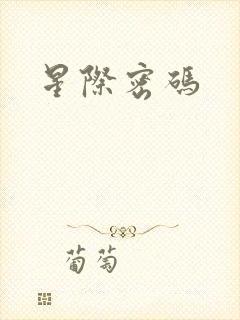 星際密碼
葡萄